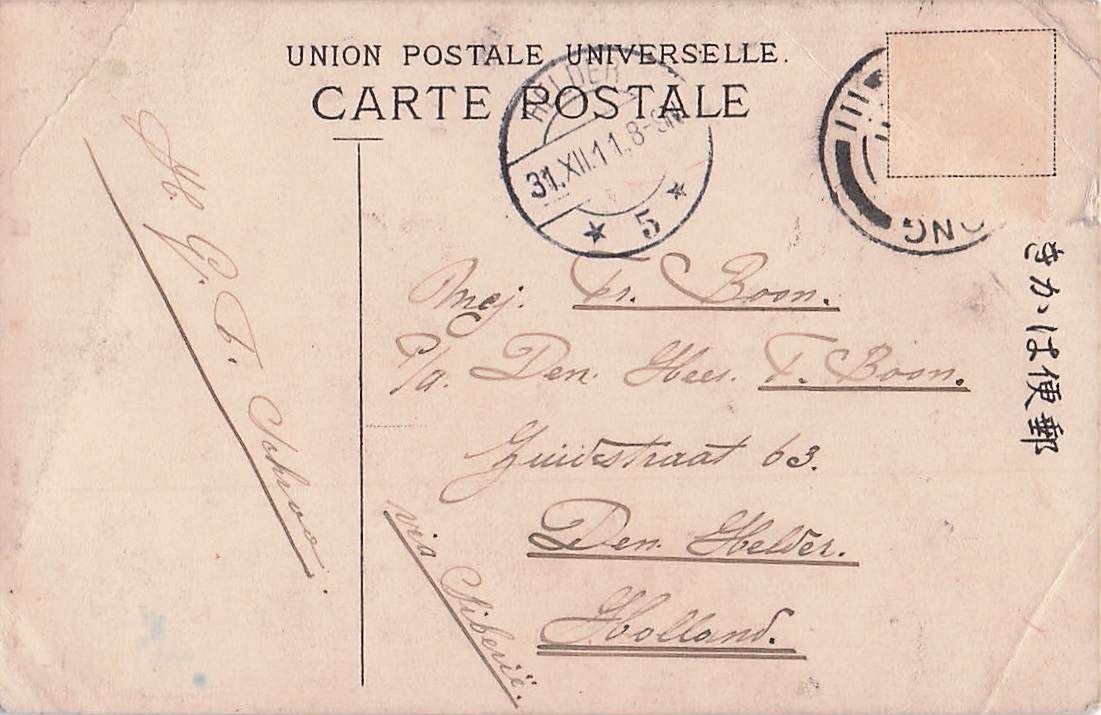 UNION POSTALE UNIVERSELLE.
CARTE POSTALE
HELDER
31.XII.11.8-9N
5
ONG
きかは便郵
H. G. T. Schroo.
Mej. Tr. Boon.
P/a. Den. Heer. T. Boon.
Zuidstraat 63.
Den Helder.
Holland.
via Siberië.